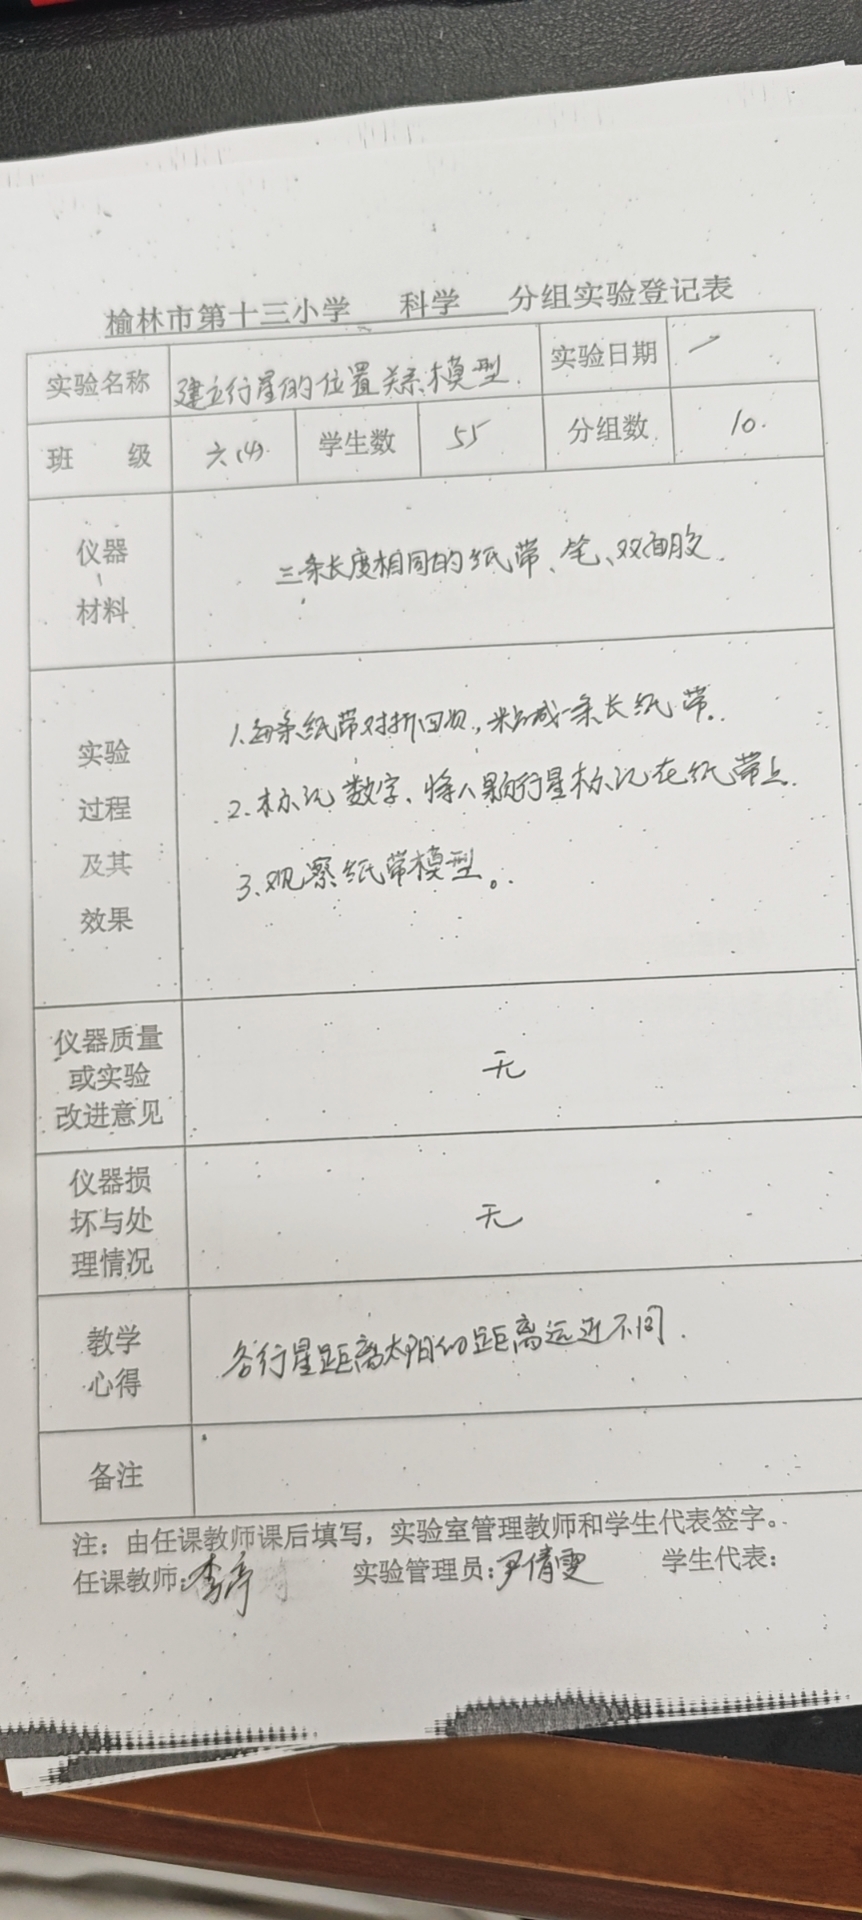 榆林市第十三小学 科学 分组实验登记表
实验名称 建立行星的位置关系模型. 实验日期
班 级 六(4) 学生数 55 分组数 10.
仪器
材料
三条长度相同的纸带、笔、双面胶.
实验
过程
及其
效果
1.每条纸带对折四次,粘成一条长纸带.
2.标记数字、将八颗行星标记在纸带上.
3.观察纸带模型。
仪器质量
或实验
改进意见
无
仪器损
坏与处
理情况
无
教学
心得
各行星距离太阳的距离远近不同.
备注
注：由任课教师课后填写，实验室管理教师和学生代表签字。
任课教师:李 实验管理员:尹倩雯 学生代表: